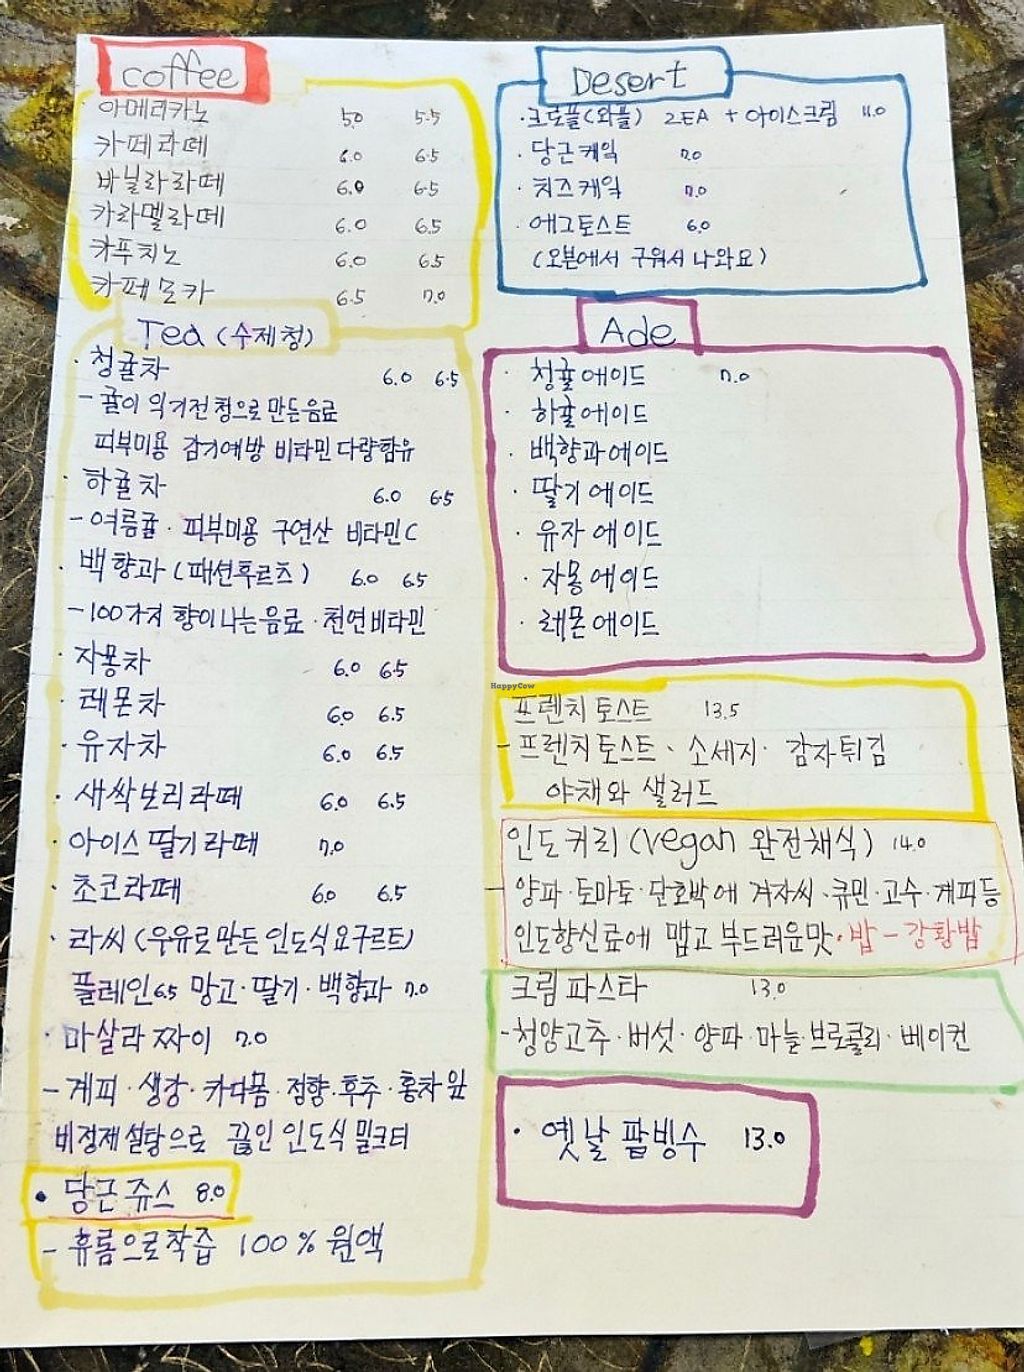 coffee
아메리카노 5.0 5.5
카페라떼 6.0 6.5
바닐라라떼 6.0 6.5
카라멜라떼 6.0 6.5
카푸치노 6.0 6.5
카페모카 6.5 7.0
Tea (수제청)
· 청귤차 6.0 6.5
- 귤이 익기전 청으로 만든음료
피부미용 감기예방 비타민 다량함유
· 하귤차 6.0 6.5
- 여름귤 · 피부미용 구연산 비타민C
· 백향과 (패션후르츠) 6.0 6.5
- 100가지 향이나는음료 · 천연비타민
· 자몽차 6.0 6.5
· 레몬차 6.0 6.5
· 유자차 6.0 6.5
· 새싹보리라떼 6.0 6.5
· 아이스 딸기라떼 7.0
· 초코라떼 6.0 6.5
· 라씨 (우유로만든 인도식요구르트)
플레인 6.5 망고 · 딸기 · 백향과 7.0
· 마살라 짜이 7.0
- 계피 · 생강 · 카다몸 · 정향 · 후추 · 홍차 잎
비정제 설탕으로 끓인 인도식 밀크티
· 당근쥬스 8.0
- 휴롬으로착즙 100% 원액
Desert
· 크로플(와플) 2EA + 아이스크림 11.0
· 당근케익 7.0
· 치즈케익 7.0
· 에그토스트 6.0
(오븐에서 구워서 나와요)
Ade
· 청귤에이드 7.0
· 하귤에이드
· 백향과에이드
· 딸기에이드
· 유자에이드
· 자몽에이드
· 레몬에이드
HappyCow
프렌치토스트 13.5
- 프렌치토스트 · 소세지 · 감자튀김
야채와 샐러드
인도커리 (vegan 완전채식) 14.0
- 양파 · 토마토 · 단호박에 겨자씨 · 큐민 · 고수 · 계피등
인도향신료에 맵고 부드러운맛 · 밥 - 강황밥
크림파스타 13.0
- 청양고추 · 버섯 · 양파 · 마늘 · 브로콜리 · 베이컨
· 옛날 팥빙수 13.0